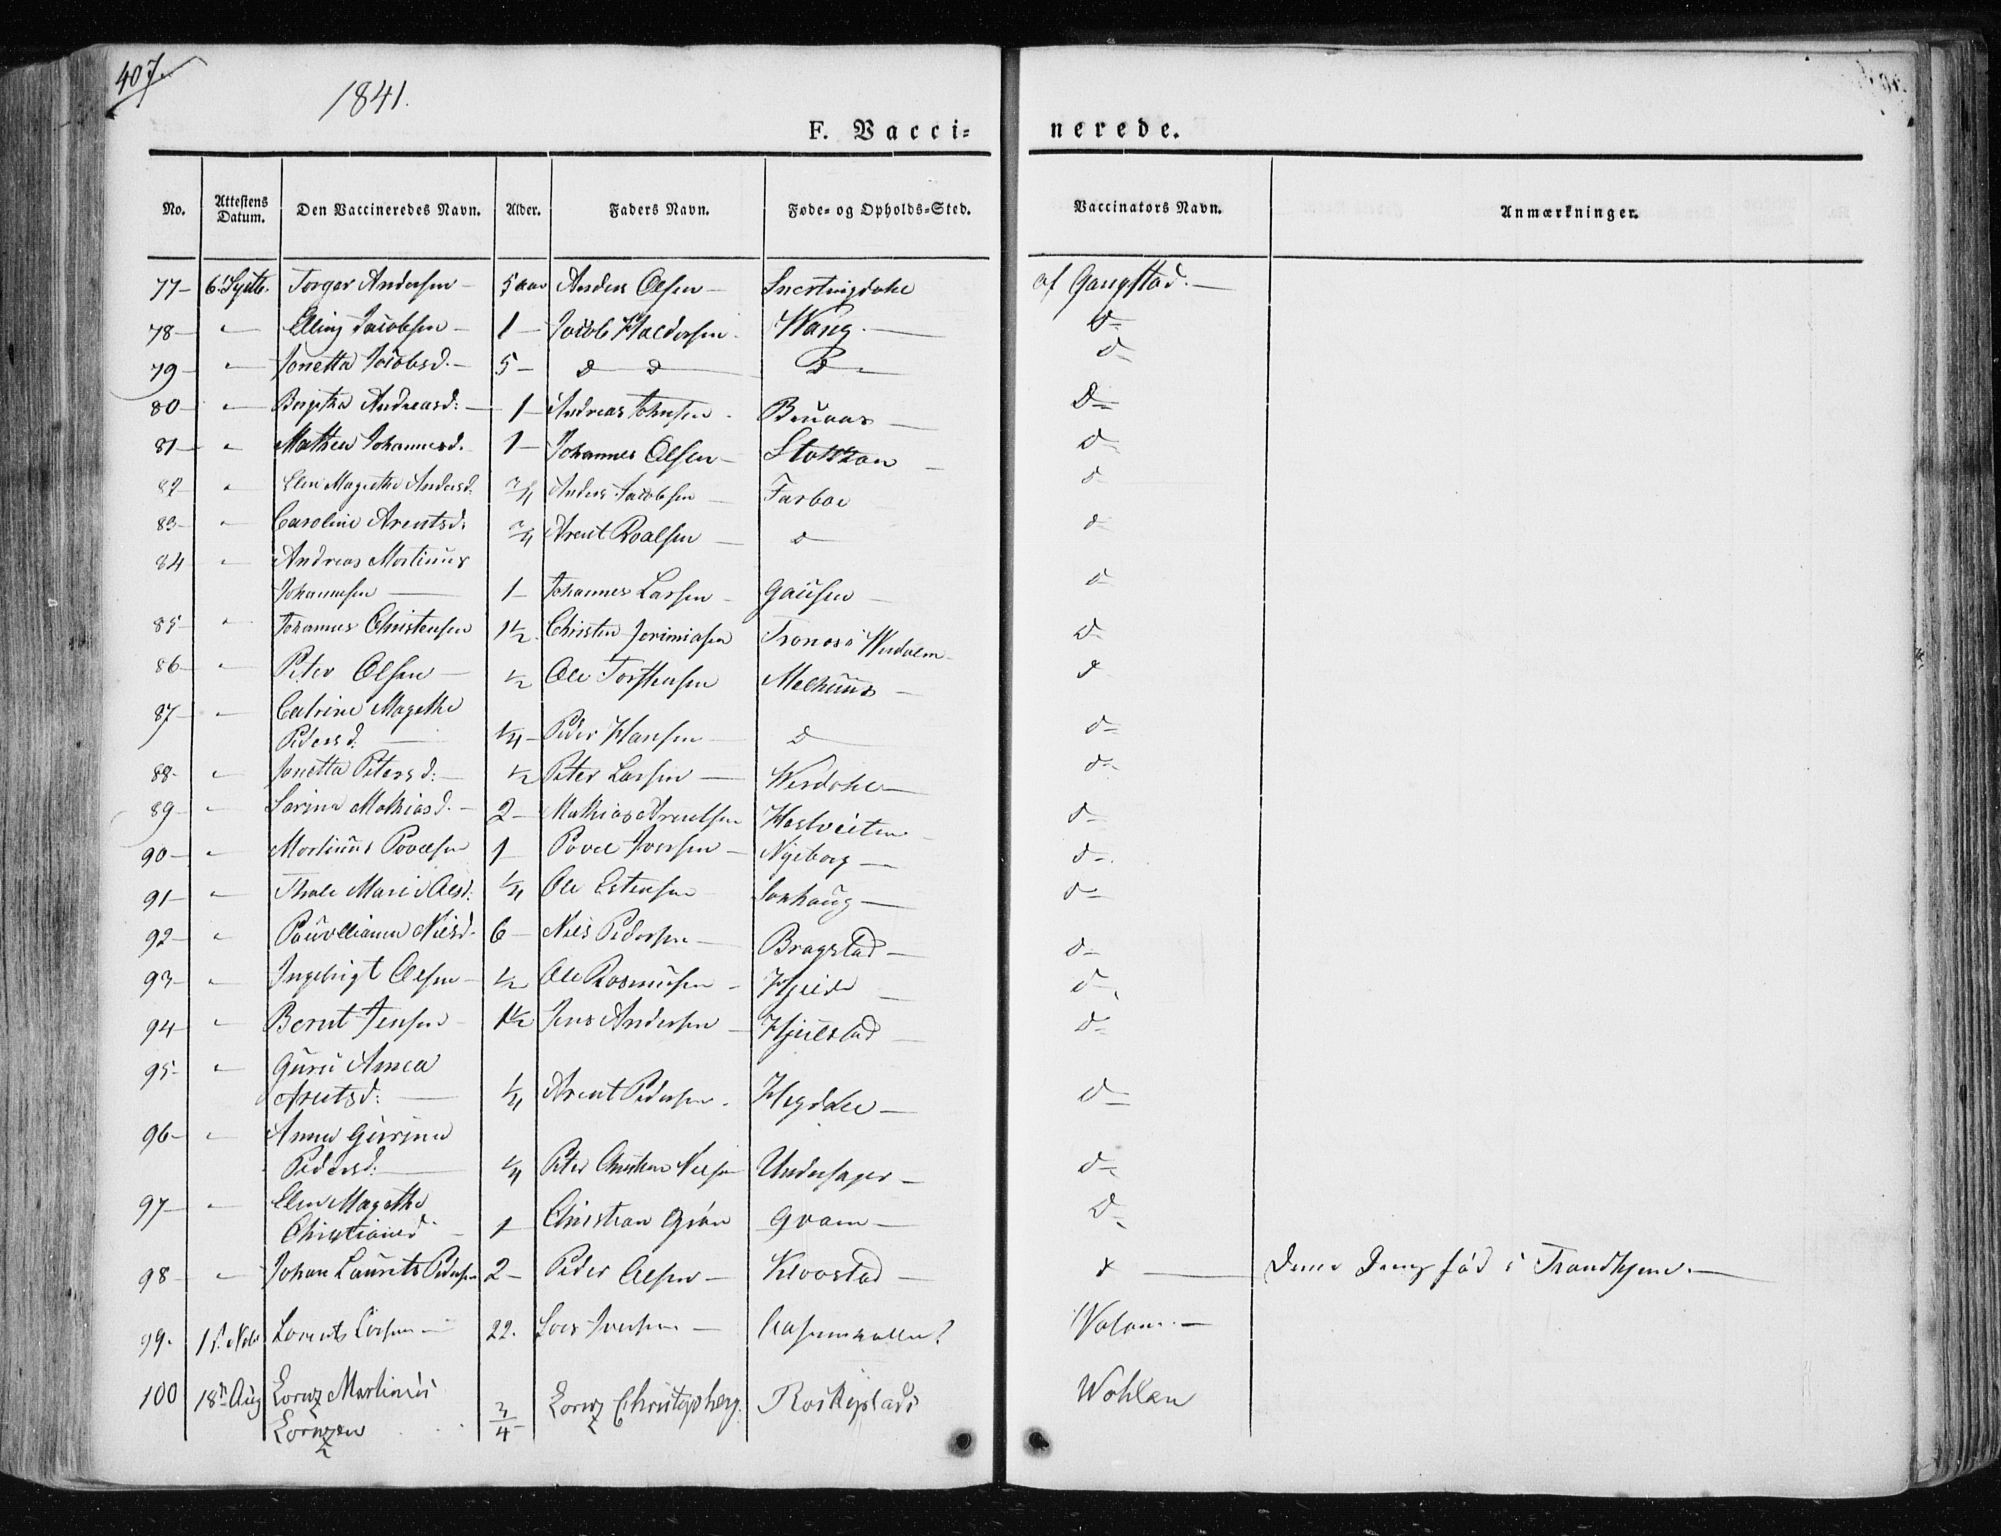 407.
1841.
F. Vacci= nerede.
No. Attestens Datum. Den Vaccineredes Navn. Alder. Faders Navn. Føde= og Opholds=Sted. Vaccinators Navn. Anmærkninger.
77 – 6 Torger Andersen – 5 aar Anders Olsen – af Gangstad. –
78 – " Elling Jacobsen – 1 – Jacob Haldorsen. Wang. – D –
79 – " Jonetta Jacobsd. – 5 – D D D – D –
80 – " Birgitha Andreasd: – 1 – Andreas Johnsen – Bruaas – D –
81 – " Mathea Johannesd. 1 – Johannes Olsen – D –
82 – " Elen Magrethe Andersd. 3/4 Anders Jacobsen – Farboe D –
83 – " Caroline Arentsd: 3/4 Arent Roalsen – D D –
84 " Andreas Martinus
Johannesen – 1 – Johannes Larsen – Gausen – D –
85 – " Johannes Christensen 1½. Christen Jerimiasen D –
86 – " Peter Olsen – ½ Ole Torstensen Melhuus – D
87 – " Catrine Magethe
Pedersd: – ¼ – Peder Hansen – D D –
88 – " Jonetta Petersd: – ½ Peter Larsen – Werdahl – D –
89 – " Sarina Mathiasd. – 2 – Mathias Arentsen Hestveiten D –
90 – " Martinus Povelsen 1 Povel Iversen – Nyeborg – D –
91 – " Thale Marie Olsd: ¼ Ole Estensen Saxhaug – D –
92 – " Nielsd. 6 – Niels Pedersen – Bragstad – D –
93 – " Ingebrigt Olsen – ½ Ole Rasmusen – Hjelde – D –
94 – " Bernt Jensen – 1½ Jens Andersen – Hjulstad – D –
95 – " Guru Anna
Arentsd: – ¼ Arent Pedersen. Hegdahl – D –
96 – " Anna Gurina
Pedersd: – ¼ Peter Christian Nielsen – D –
97 – " Elen Magethe
Christiansd – 1 Christian Grøn Qvam – D –
98 – " Johan Laurits Pedersen 2 – Peder Olsen – Klovstad – D – Denne Dreng fød i Trondhjem. –
99. 1. Nov Lorents Larsen – 22. Lars Iversen – Wolan. –
100 18. Aug Lorenz Martinus
Lorenzen 3/4 Lorenz Christopherg. Wohlan